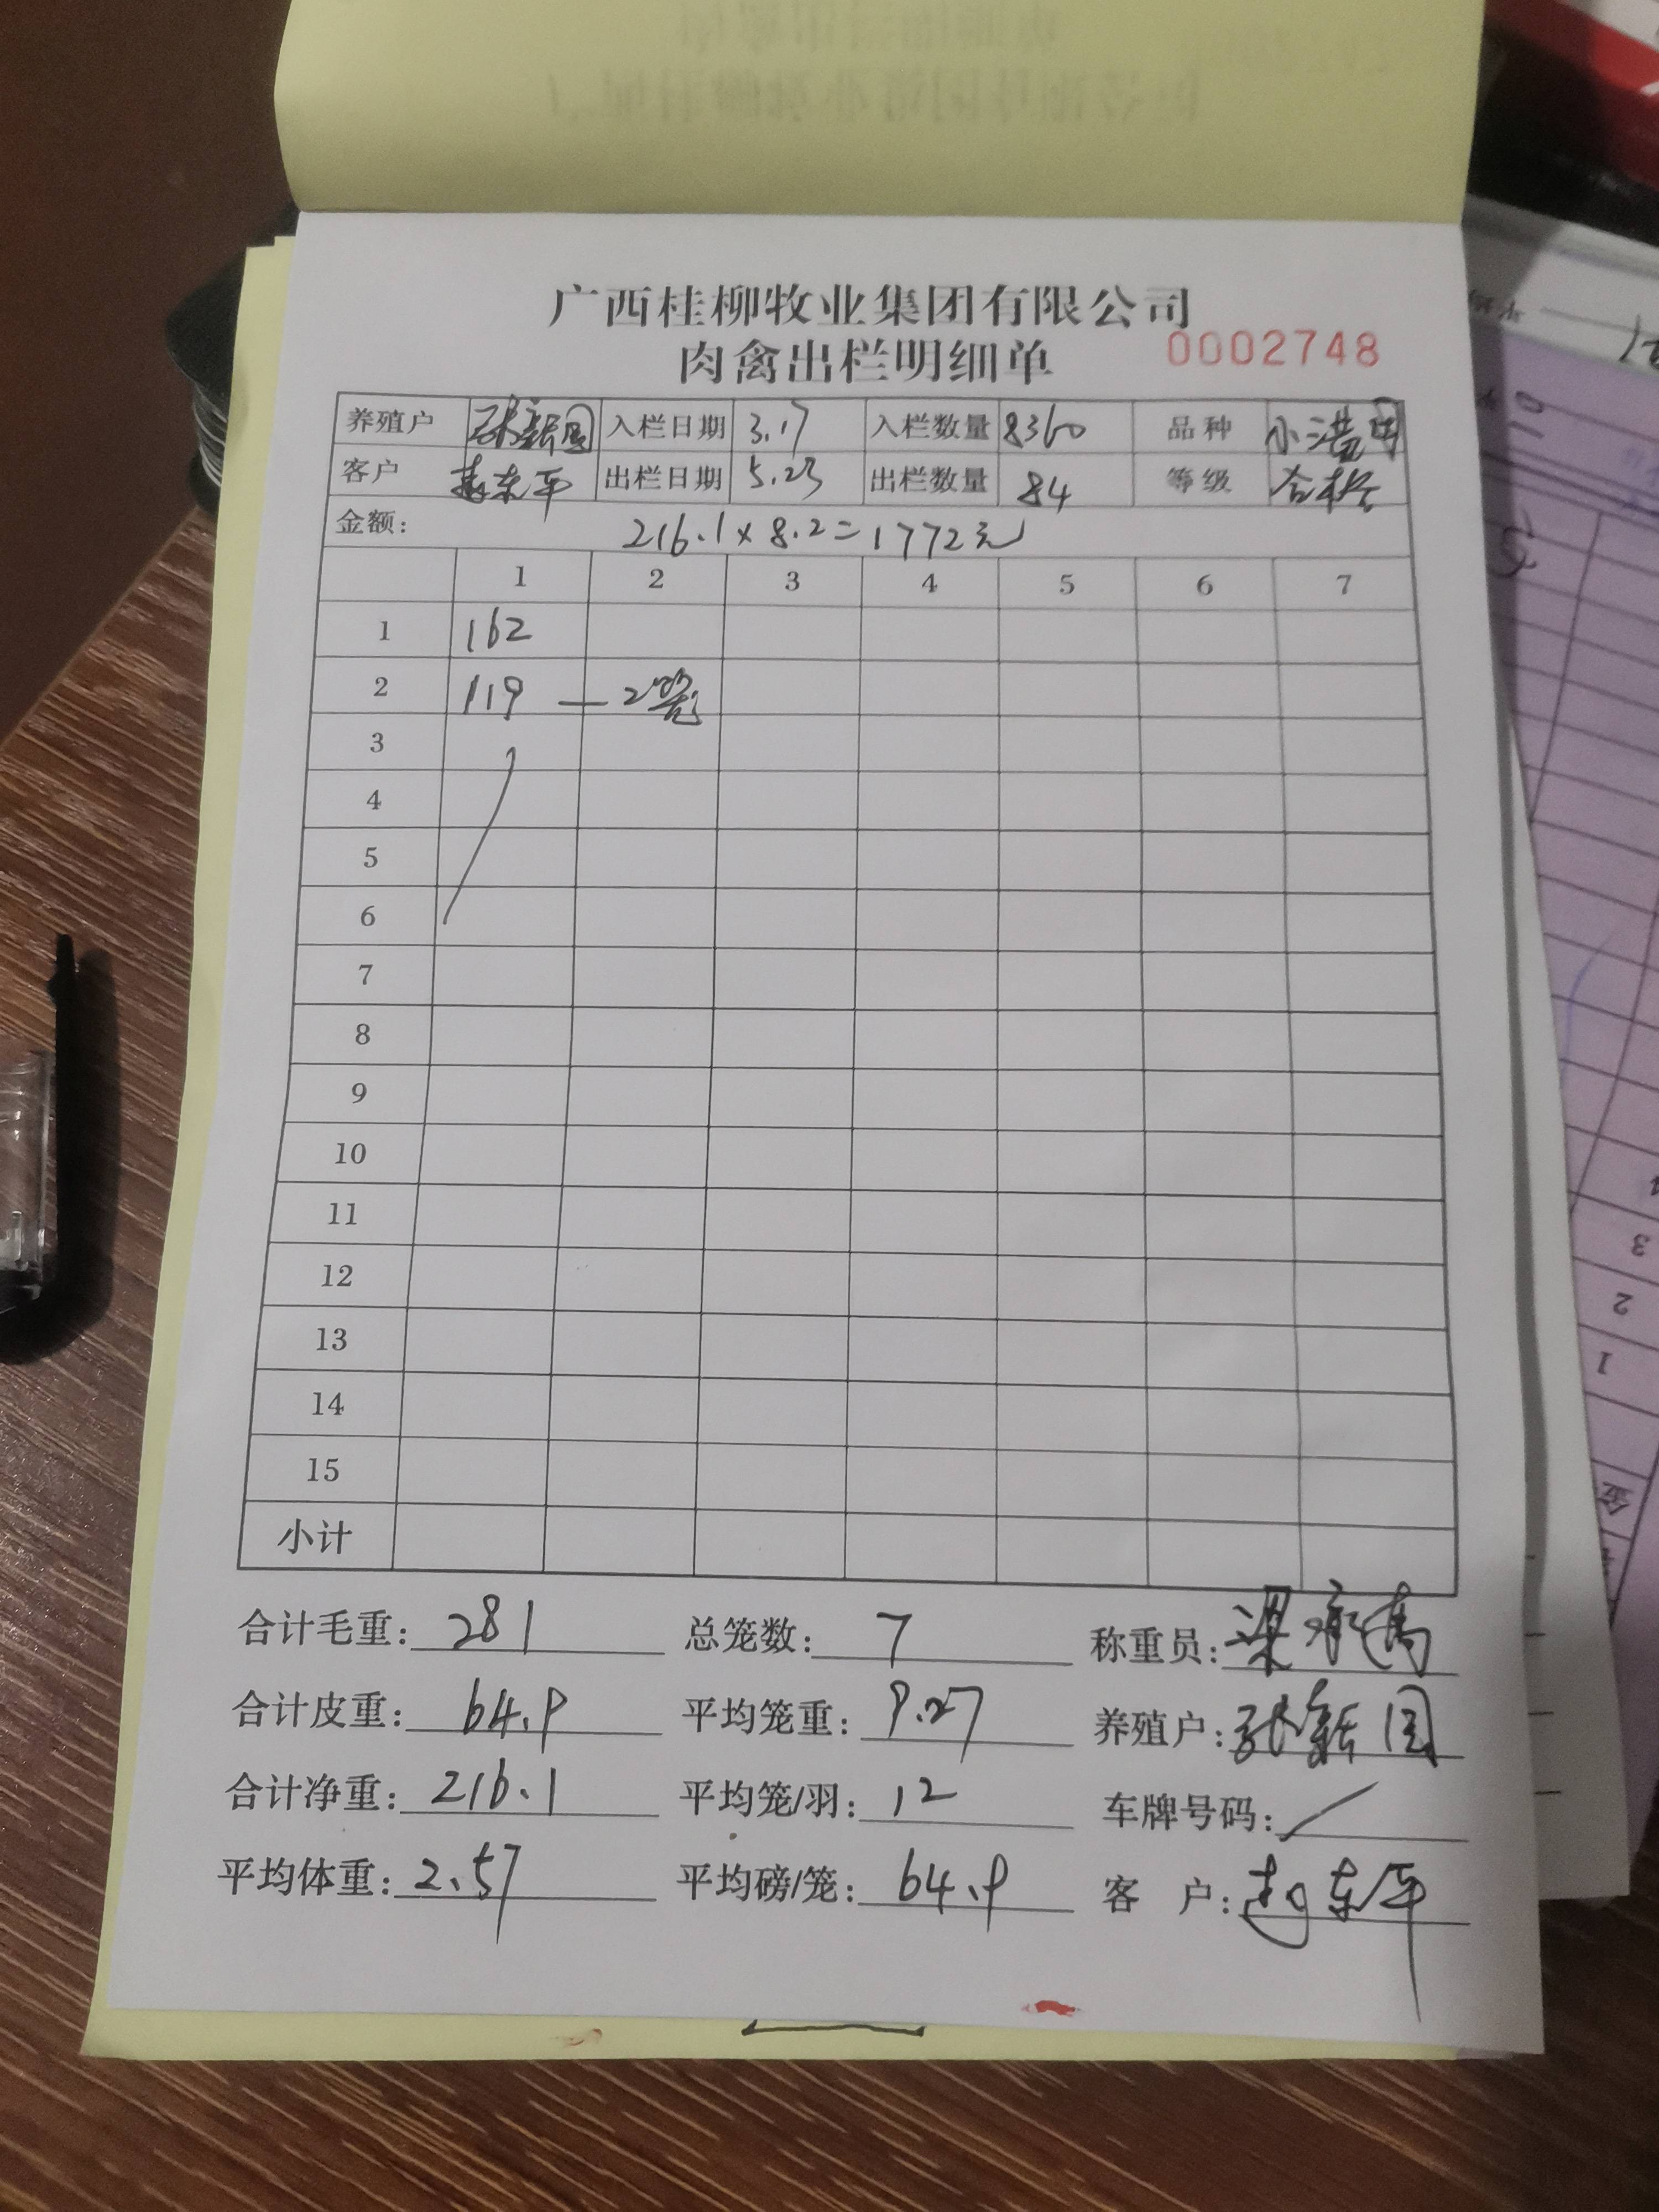 广西桂柳牧业集团有限公司
肉禽出栏明细单 0002748
养殖户 张新国 入栏日期 3.17 入栏数量 8360 品种
客户 赵东平 出栏日期 5.23 出栏数量 84 等级 合格
金额: 216.1×8.2=1772元
1 2 3 4 5 6 7
1 162
2 119 — 2笼
3
4
5
6
7
8
9
10
11
12
13
14
15
小计
合计毛重: 281 总笼数: 7 称重员: 梁
合计皮重: 64.9 平均笼重: 9.27 养殖户: 张新国
合计净重: 216.1 平均笼/羽: 12 车牌号码: /
平均体重: 2.57 平均磅/笼: 64.9 客 户: 赵东平